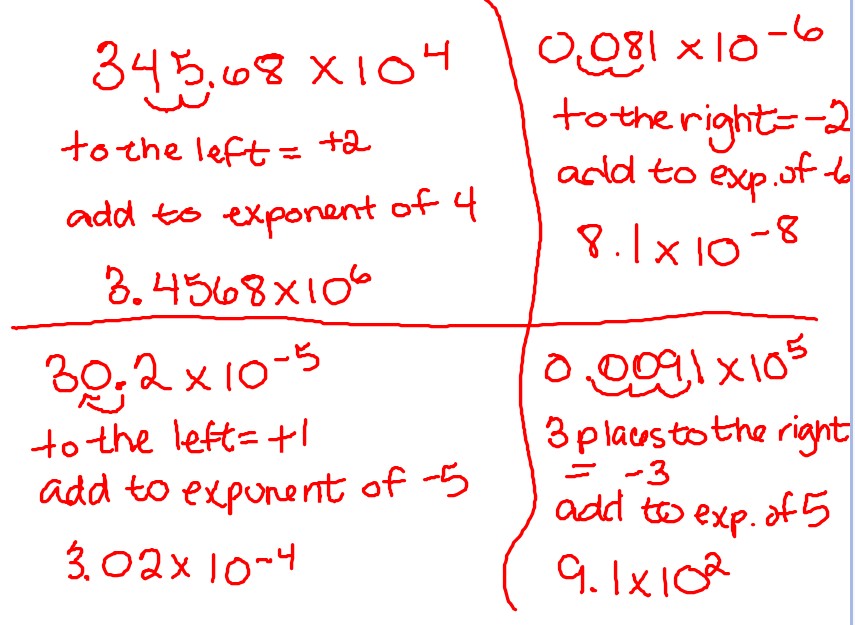 345.68 × 10⁴
to the left = +2
add to exponent of 4
3.4568 × 10⁶
0.081 × 10⁻⁶
to the right = -2
add to exp. of -6
8.1 × 10⁻⁸
30.2 × 10⁻⁵
to the left = +1
add to exponent of -5
3.02 × 10⁻⁴
0.0091 × 10⁵
3 places to the right
= -3
add to exp. of 5
9.1 × 10²